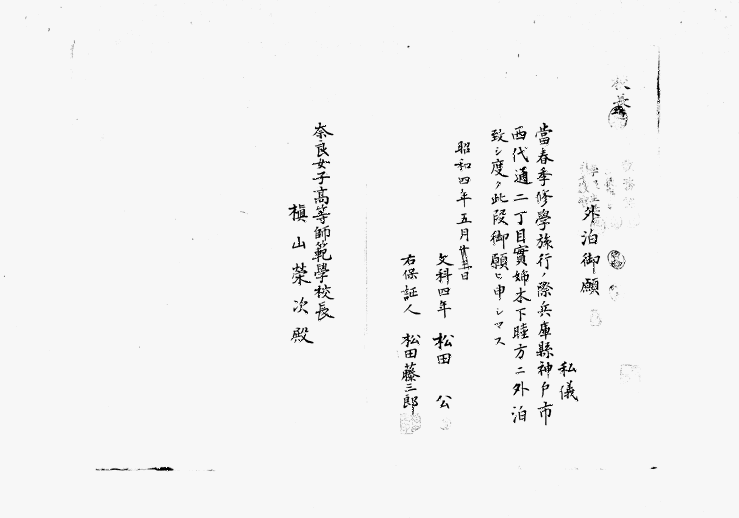 外泊御願
私儀
當春季修學旅行ノ際兵庫縣神戸市
西代通二丁目實姉木下睦方ニ外泊
致シ度ク此段御願ヒ申シマス
昭和四年五月廿三日
文科四年 松田 公
右保証人 松田藤三郎
奈良女子高等師範學校長
槇山榮次殿